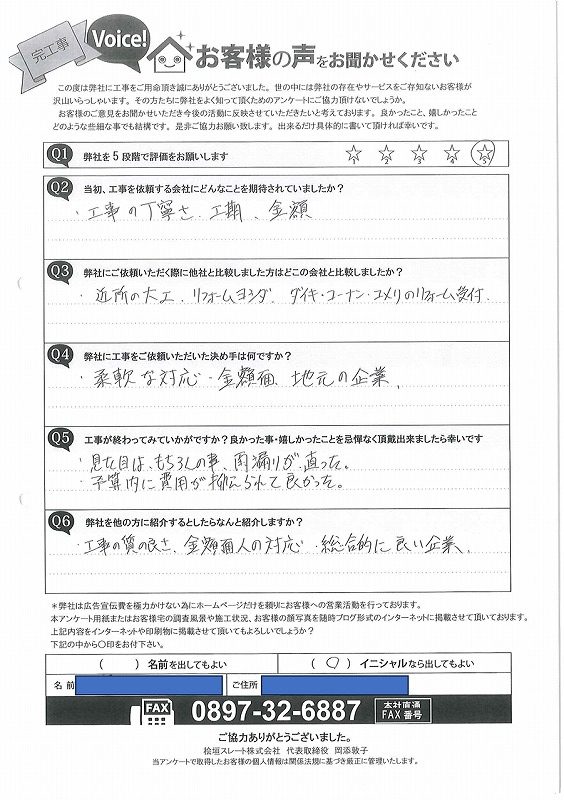 完工事
Voice!
お客様の声をお聞かせください
この度は弊社に工事をご用命頂き誠にありがとうございました。世の中には弊社の存在やサービスをご存知ないお客様が
沢山いらっしゃいます。その方たちに弊社をよく知って頂くためのアンケートにご協力頂けないでしょうか。
お客様のご意見をお聞かせいただき今後の活動に反映させていただきたいと考えております。良かったこと、嬉しかったこと
どのような些細な事でも結構です。是非ご協力お願い致します。出来るだけ具体的に書いて頂ければ幸いです。
Q1 弊社を5段階で評価をお願いします ☆1 ☆2 ☆3 ☆4 ☆5
Q2 当初、工事を依頼する会社にどんなことを期待されていましたか？
・工事の丁寧さ、工期、金額
Q3 弊社にご依頼いただく際に他社と比較しました方はどこの会社と比較しましたか？
・近所の大工、リフォームヨシダ、ダイキ・コーナン・コメリのリフォーム受付、
Q4 弊社に工事をご依頼いただいた決め手は何ですか？
・柔軟な対応・金額面、地元の企業、
Q5 工事が終わってみていかがですか？良かった事・嬉しかったことを忌憚なく頂戴出来ましたら幸いです
・見た目は、もちろんの事、雨漏りが、直った。
・予算内に費用が抑えられて良かった。
Q6 弊社を他の方に紹介するとしたらなんと紹介しますか？
・工事の質の良さ、金額面人の対応・総合的に良い企業、
＊弊社は広告宣伝費を極力かけない為にホームページだけを頼りにお客様への営業活動を行っております。
本アンケート用紙またはお客様宅の調査風景や施工状況、お客様の顔写真を随時ブログ形式のインターネットに掲載させて頂いております。
上記内容をインターネットや印刷物に掲載させて頂いてもよろしいでしょうか？
下記の中から〇印をお付下さい。
（　　）名前を出してもよい （ 〇 ）イニシャルなら出してもよい
名前 ご住所
FAX 0897-32-6887 本社直通 FAX番号
ご協力ありがとうございました。
桧垣スレート株式会社 代表取締役 岡添敦子
当アンケートで取得したお客様の個人情報は関係法規に基づき厳正に管理いたします。